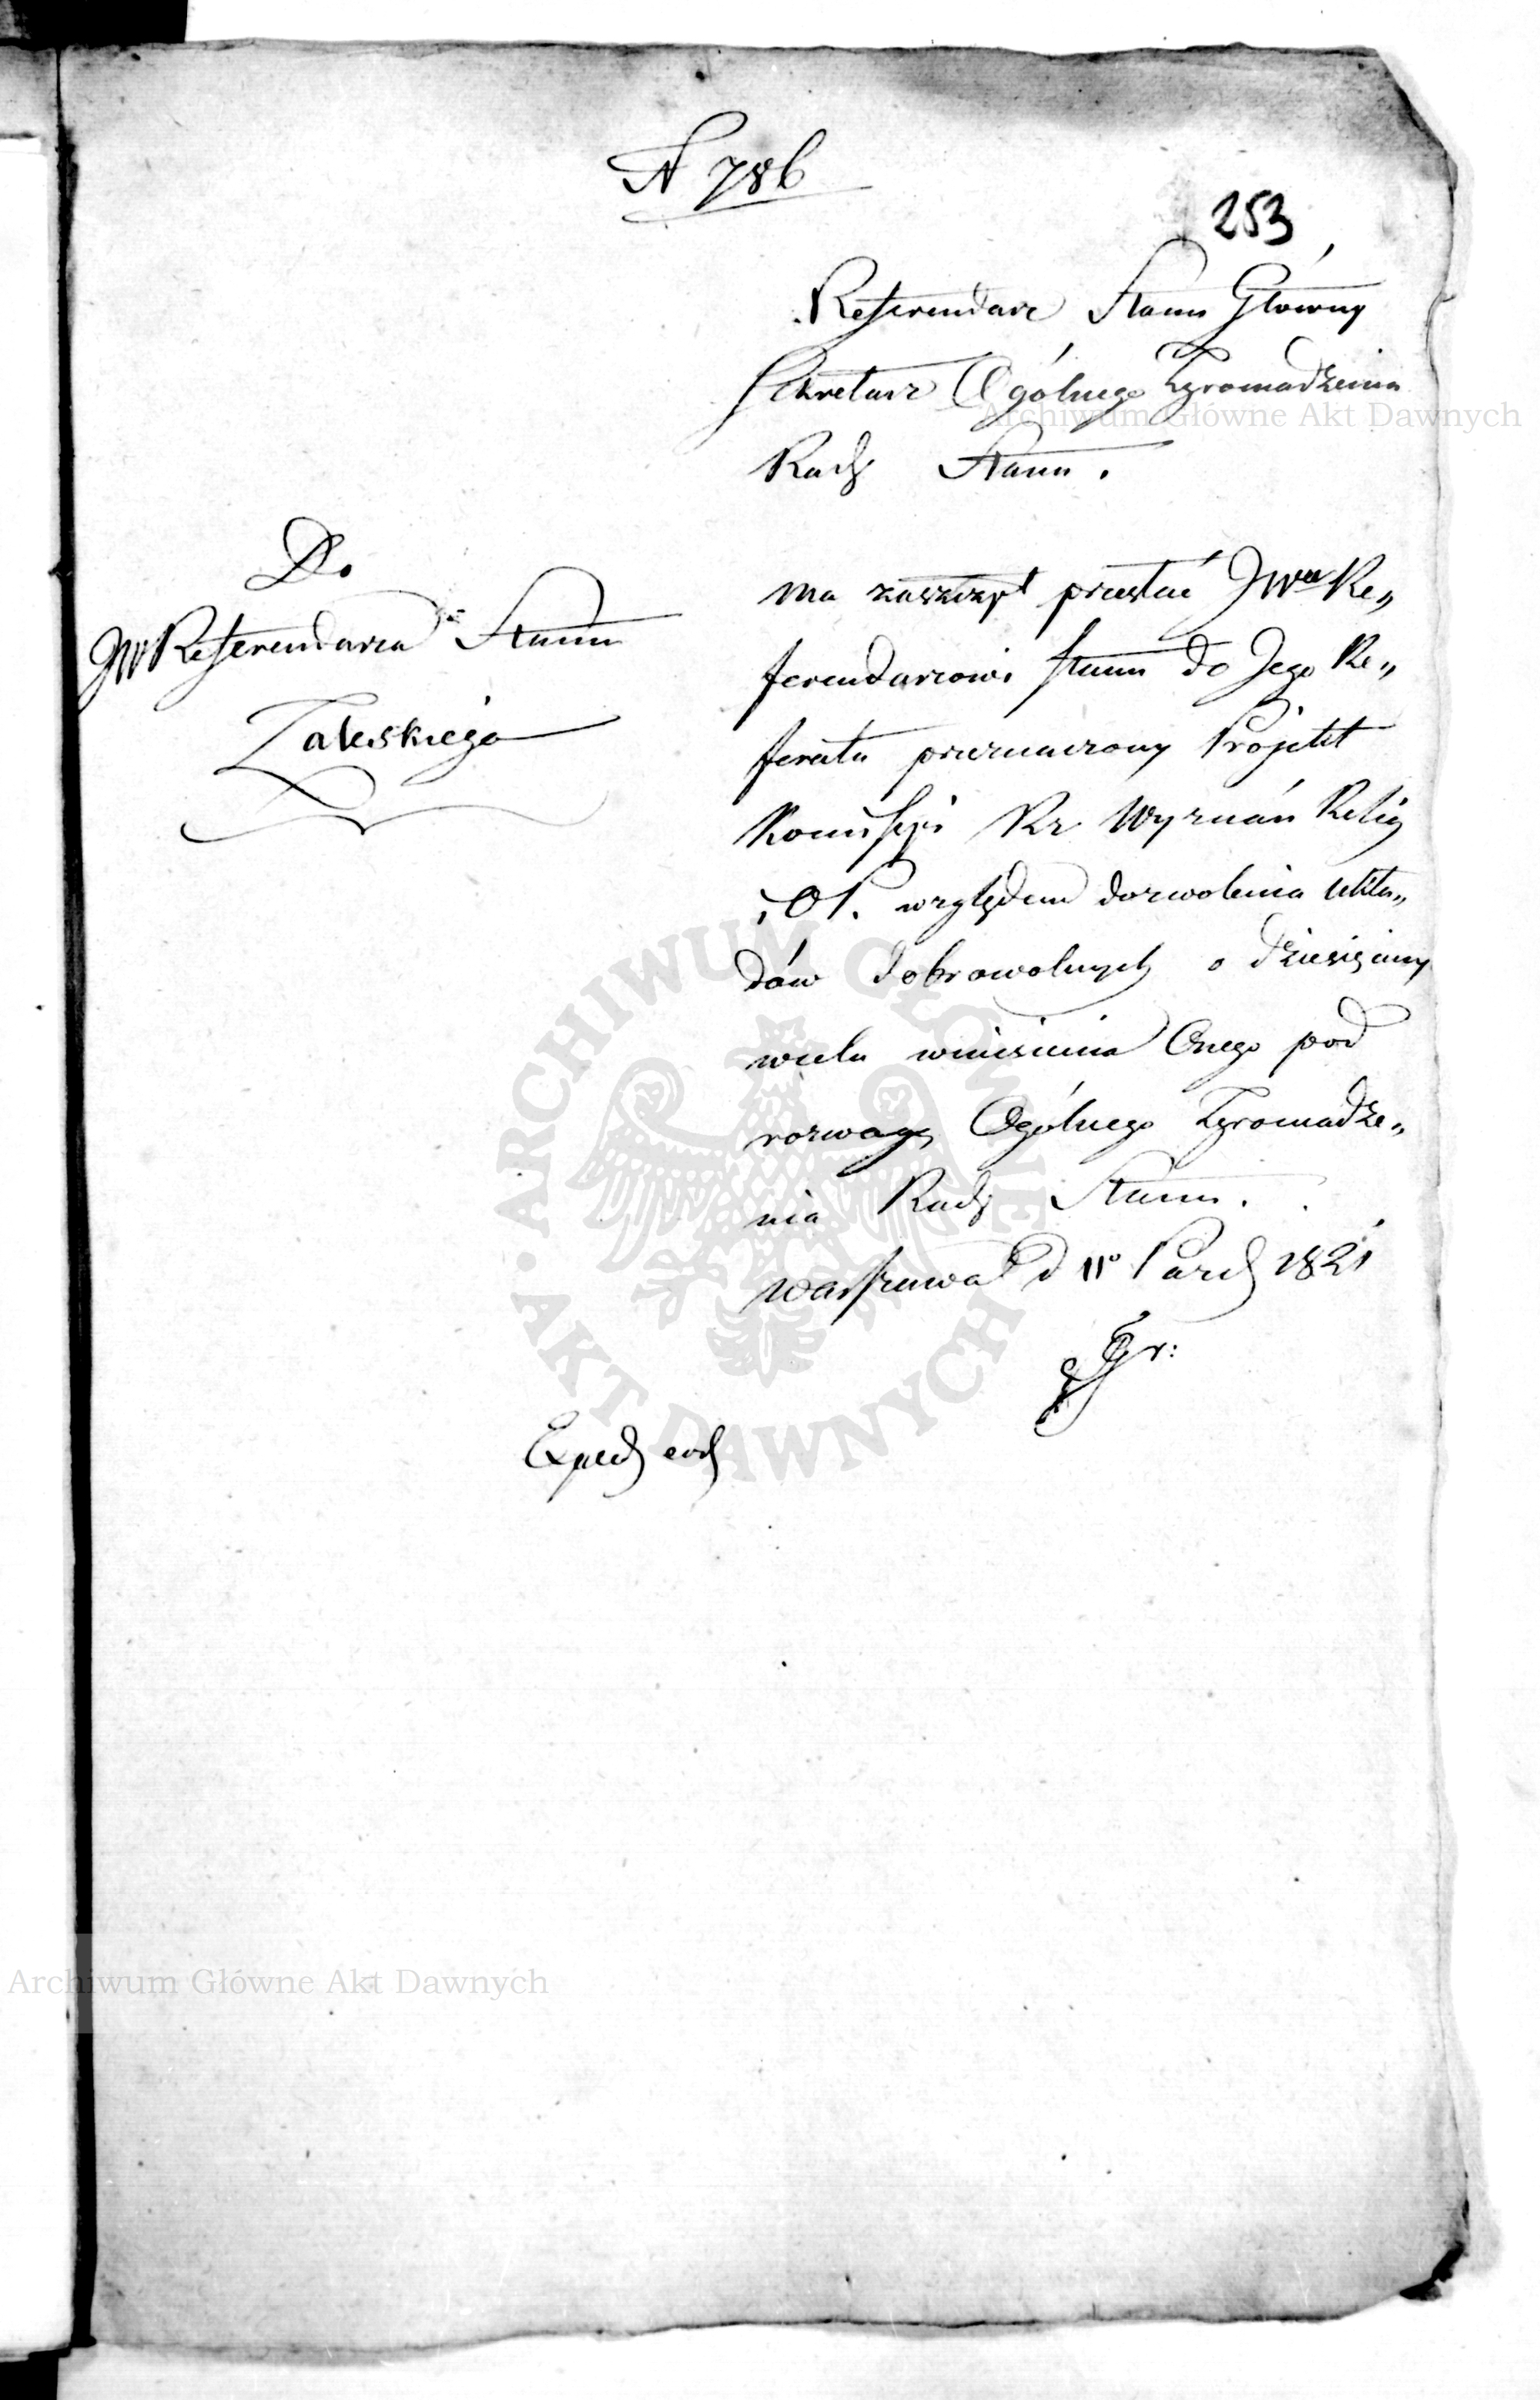 N 786
253
Referendarz Stanu Główny
Sekretarz Ogólnego Zgromadzenia
Rady Stanu.
Do
JW Referendarza Stanu
Zaleskiego
ma zaszczyt przesłać JWu Re„
ferendarzowi Stanu do Jego Re„
feratu przeznaczony Projekt
Kommissyi Rz Wyznań Relig
i OP. względem dozwolenia ukła„
dów dobrowolnych o dziesięciny
wcelu wniesienia Onego pod
rozwagę Ogólnego Zgromadze„
nia Rady Stanu.
Warszawa d 11o Pazd 1821
Gr:
Exped eod
Archiwum Główne Akt Dawnych
ARCHIWUM GŁÓWNE AKT DAWNYCH
Archiwum Główne Akt Dawnych